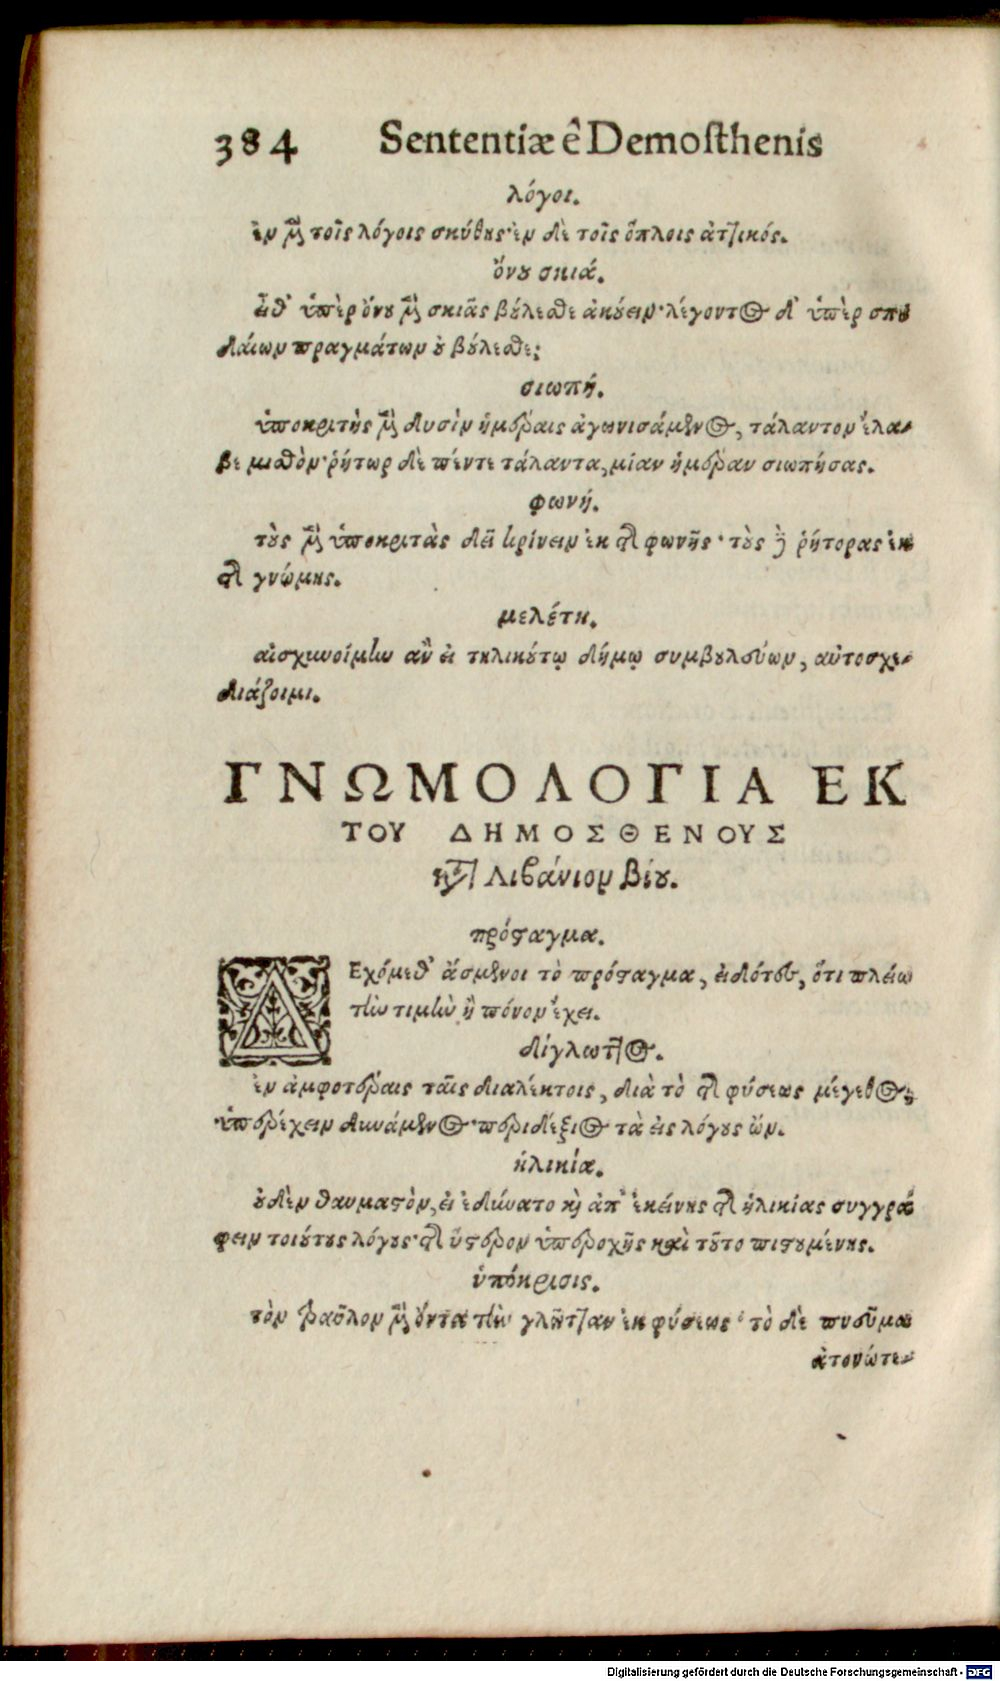 384 Sententiæ ê Demosthenis
λόγοι.
ἐν μὲν τοῖς λόγοις σκύθης· ἐν δὲ τοῖς ὅπλοις ἀττικός.
ὄνου σκιά.
εἶθ' ὑπὲρ ὄνου μὲν σκιᾶς βούλεσθε ἀκούειν· λέγοντος δ' ὑπὲρ σπου
δαίων πραγμάτων οὐ βούλεσθε;
σιωπή.
ὑποκριτὴς μὲν δυσὶν ἡμέραις ἀγωνισάμενος, τάλαντον ἔλα-
βε μισθὸν· ῥήτωρ δὲ πέντε τάλαντα, μίαν ἡμέραν σιωπήσας.
φωνή.
τοὺς μὲν ὑποκριτὰς δεῖ κρίνειν ἐκ τῆς φωνῆς· τοὺς δὲ ῥήτορας ἐκ
τῆς γνώμης.
μελέτη.
αἰσχυνοίμην ἂν εἰ τηλικούτῳ δήμῳ συμβουλεύων, αὐτοσχε-
διάζοιμι.
ΓΝΩΜΟΛΟΓΙΑ ΕΚ
ΤΟΥ ΔΗΜΟΣΘΕΝΟΥΣ
κατὰ Λιβάνιον βίου.
πρόσταγμα.
ΔΕχόμεθ' ἄσμενοι τὸ πρόσταγμα, εἰδότες, ὅτι πλείω
τὴν τιμὴν ἢ πόνον ἔχει.
δίγλωττος.
ἐν ἀμφοτέραις ταῖς διαλέκτοις, διὰ τὸ τῆς φύσεως μέγεθος,
ὑπερέχειν δυνάμενος· περιδέξιος τὰ εἰς λόγους ὤν.
ἡλικία.
οὐδὲν θαυμαστὸν, εἰ ἐδύνατο καὶ ἀπ' ἐκείνης τῆς ἡλικίας συγγρά
φειν τοιούτους λόγους· τῆς ὕστερον ὑπεροχῆς καὶ τοῦτο πιστουμένης.
ὑπόκρισις.
τὸν τραυλὸν μὲν ὄντα τὴν γλῶτταν ἐκ φύσεως· τὸ δὲ πνεῦμα
ἀτονώτε-
Digitalisierung gefördert durch die Deutsche Forschungsgemeinschaft - DFG